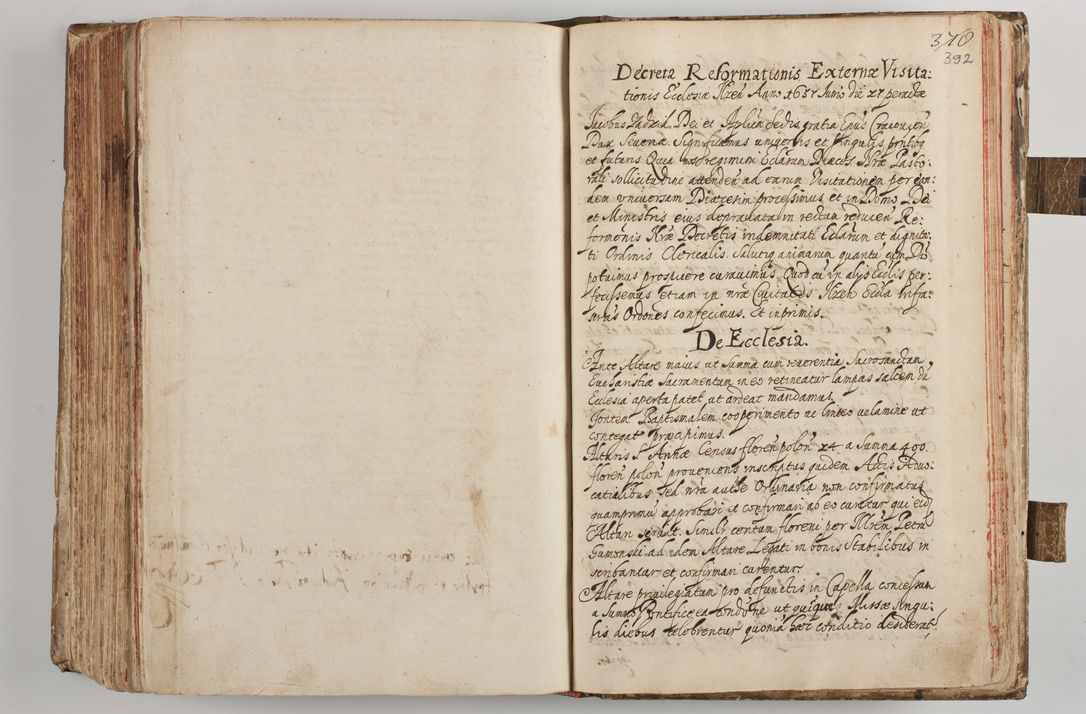 370
392
Decreta Reformationis Externæ Visita:
tionis Ecclesiæ Ilzen Anno 1637 Junio die 27 peractæ
Jacobus Zadzik Dei et Aplicæ Sedis gratia Epūs Cracovien
Dux Severiæ. Significamus universis et singulis pntibg
et futuris Quia nos regimini Eclarum Diæcis Nræ Pasto:
rali sollicitudine attenden ad earum Visitationem per ean:
dem universam Diæcesim processimus et in Domo Dei
et Ministris eius depravata in rectum reducen Re:
formōnis Nræ Decretis indemnitati Eclarum et dignita:
ti Ordinis Clericalis. Salutiq animarum quantū cum Dō
potuimus prospicere curavimus. Quod cū in alys Ecclis per:
fecissemus etiam in nra Civitatis Ilzen Ecclā infra:
scrīus Ordōnes confecimus. Et inprimis.
De Ecclesia.
Ante Altare maius ut Summa cum reverentia Sacrosanctum
Eucharistiæ Sacramentum in eo retineatur lampas saltem dū
Ecclesia aperta patet ut ardeat mandamus.
Fontem Baptismalem cooperimento ac linteo velamine ut
contegat præcipimus.
Altaris S Annæ Census floren polon 24 a Summa 400.
floren polon proveniens inscriptus quidem Actis Advo:
catialibus sed nra autte Ordinaria non confirmatus
quamprimū approbari et confirmari ab eo curetur qui eid
Altari servit. Similr centum floreni per Petrū
Gumonski ad idem Altare Legati in bonis stabilibus in
scribantur et confirmari curentur.
Altare privilegiatum pro defunctis in Capella concessum
a Summo Pontifice ea condōne ut quinque Missæ singu:
lis diebus celebrentur quoniā hæc conditio desiderat,